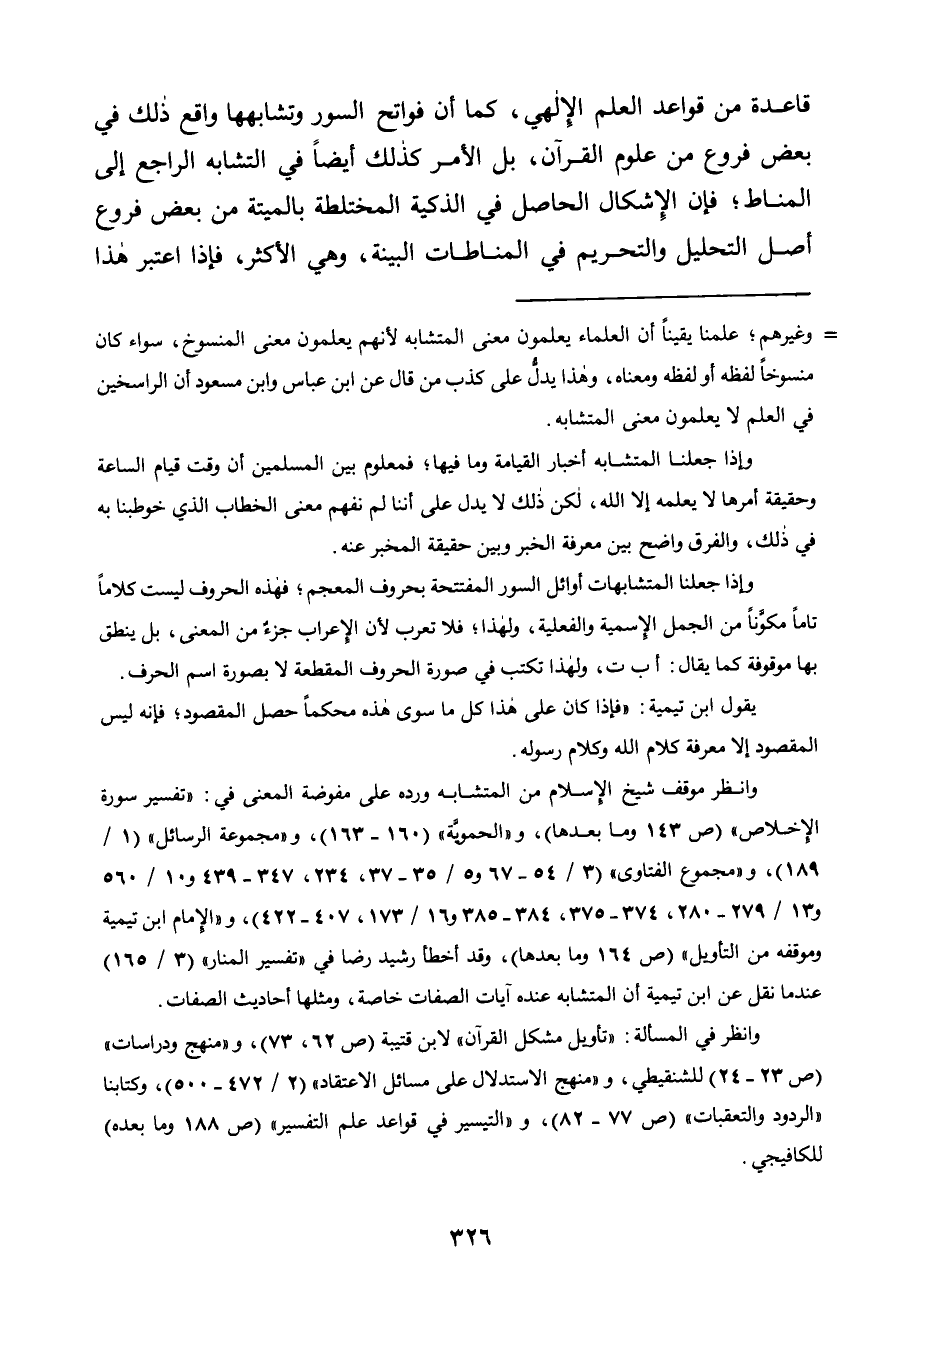 قاعـدة من قواعد العلم الإلٰهي، كما أن فواتح السور وتشابهها واقع ذٰلك في
بعض فروع من علوم القـرآن، بل الأمـر كذٰلك أيضاً في التشابه الراجع إلى
المنـاط؛ فإن الإشكال الحاصل في الذكية المختلطة بالميتة من بعض فروع
أصـل التحليل والتحـريم في المنـاطـات البينة، وهي الأكثر، فإذا اعتبر هٰذا
= وغيرهم؛ علمنا يقيناً أن العلماء يعلمون معنى المتشابه لأنهم يعلمون معنى المنسوخ، سواء كان
منسوخاً لفظه أو لفظه ومعناه، وهٰذا يدلُّ على كذب من قال عن ابن عباس وابن مسعود أن الراسخين
في العلم لا يعلمون معنى المتشابه.
وإذا جعلنـا المتشـابه أخبار القيامة وما فيها؛ فمعلوم بين المسلمين أن وقت قيام الساعة
وحقيقة أمرها لا يعلمه إلا الله، لٰكن ذٰلك لا يدل على أننا لم نفهم معنى الخطاب الذي خوطبنا به
في ذٰلك، والفرق واضح بين معرفة الخبر وبين حقيقة المخبر عنه.
وإذا جعلنا المتشابهات أوائل السور المفتتحة بحروف المعجم؛ فهٰذه الحروف ليست كلاماً
تاماً مكوَّناً من الجمل الإسمية والفعلية، ولهٰذا؛ فلا تعرب لأن الإعراب جزءٌ من المعنى، بل ينطق
بها موقوفة كما يقال: أ ب ت، ولهٰذا تكتب في صورة الحروف المقطعة لا بصورة اسم الحرف.
يقول ابن تيمية: «فإذا كان على هٰذا كل ما سوى هٰذه محكماً حصل المقصود؛ فإنه ليس
المقصود إلا معرفة كلام الله وكلام رسوله.
وانـظر موقف شيخ الإسـلام من المتشـابـه ورده على مفوضة المعنى في: «تفسير سورة
الإخـلاص» (ص ١٤٣ ومـا بعـدها)، و«الحمويَّة» (١٦٠ - ١٦٣)، و«مجموعة الرسائل» (١ /
١٨٩)، و«مجموع الفتاوى» (٣ / ٥٤ - ٦٧ و٥ / ٣٥ - ٣٧، ٢٣٤، ٣٤٧ - ٤٣٩ و١٠ / ٥٦٠
و١٣ / ٢٧٩ - ٢٨٠، ٣٧٤ - ٣٧٥، ٣٨٤ - ٣٨٥ و١٦ / ١٧٣، ٤٠٧ - ٤٢٢)، و«الإمام ابن تيمية
وموقفه من التأويل» (ص ١٦٤ وما بعدها)، وقد أخطأ رشيد رضا في «تفسير المنار» (٣ / ١٦٥)
عندما نقل عن ابن تيمية أن المتشابه عنده آيات الصفات خاصة، ومثلها أحاديث الصفات.
وانظر في المسألة: «تأويل مشكل القرآن» لابن قتيبة (ص ٦٢، ٧٣)، و«منهج ودراسات»
(ص ٢٣ - ٢٤) للشنقيطي، و«منهج الاستدلال على مسائل الاعتقاد» (٢ / ٤٧٢ - ٥٠٠)، وكتابنا
«الردود والتعقبات» (ص ٧٧ - ٨٢)، و «التيسير في قواعد علم التفسير» (ص ١٨٨ وما بعده)
للكافيجي.
٣٢٦